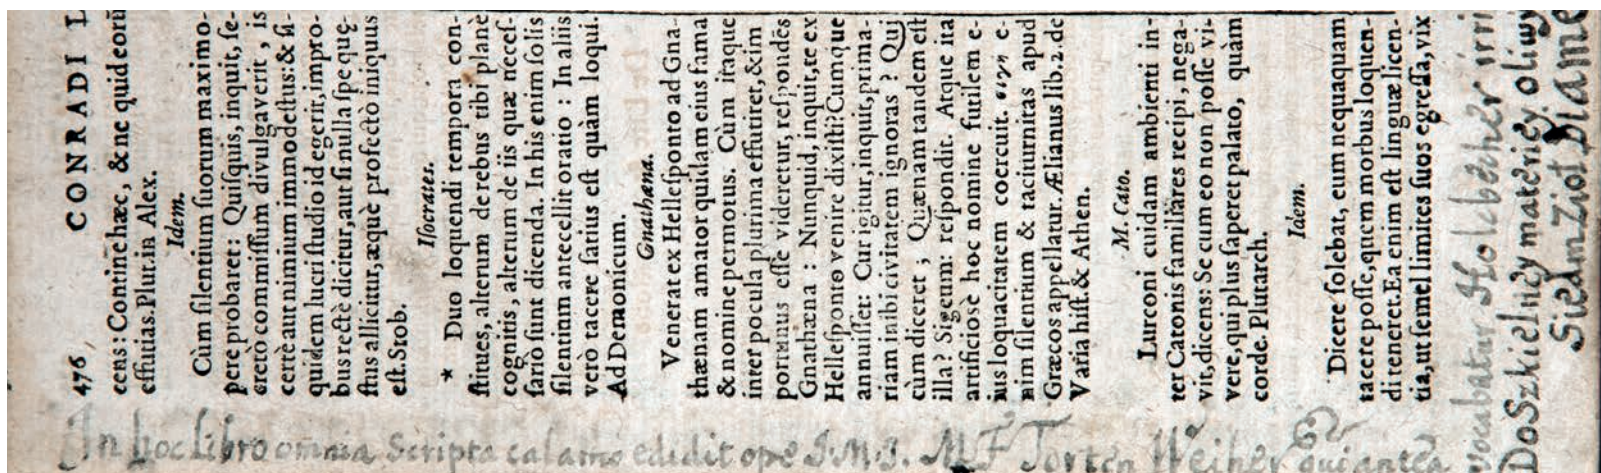 476 CONRADI L
cens: Contine hæc, & ne quid eorũ
effutias. Plur. in Alex.
Idem.
Cùm silentium suorum maximo-
pere probaret: Quisquis, inquit, se-
cretò commissum divulgaverit, is
certè aut nimium immodestus: & si-
quidem lucri studio id egerit, impro-
bus rectè dicitur, aut si nulla spe quę-
stus allicitur, æquè profectò iniquus
est. Stob.
Isocrates.
* Duo loquendi tempora con-
stitues, alterum de rebus tibi planè
cognitis, alterum de iis quæ neces-
sariò sunt dicenda. In his enim solis
silentium antecellit oratio: In aliis
verò tacere satius est quàm loqui.
Ad Demonicum.
Gnathæna.
Venerat ex Hellesponto ad Gna-
thænam amator quidam eius fama
& nomine permotus. Cùm itaque
inter pocula plurima effutiret, & im
portunus esse videretur, respondẽs
Gnathæna: Nunquid, inquit, te ex
Hellesponto venire dixisti? Cumque
annuisset: Cur igitur, inquit, prima-
riam in ibi civitatem ignoras? Qui
cùm diceret; Quænam tandem est
illa? Sigeum: respondit. Atque ita
artificiosè hoc nomine futilem e-
ius loquacitatem coercuit. σιγὴ e-
nim silentium & taciturnitas apud
Græcos appellatur. Ælianus lib. 2. de
Varia hist. & Athen.
M. Cato.
Lurconi cuidam ambienti in-
ter Catonis familiares recipi, nega-
vit, dicens: Se cum eo non posse vi-
vere, qui plus saperet palato, quàm
corde. Plutarch.
Idem.
Dicere solebat, eum nequaquam
tacere posse, quem morbus loquen-
di teneret. Ea enim est linguæ licen-
tia, ut semel limites suos egressa, vix
vocabatur Holebecher irri
Do Szkielnicy materiey oliwy
Siedm Ziot Diame
In hoc libro omnia Scripta calamo edidit ope J.M.J. M F Torten Weiher